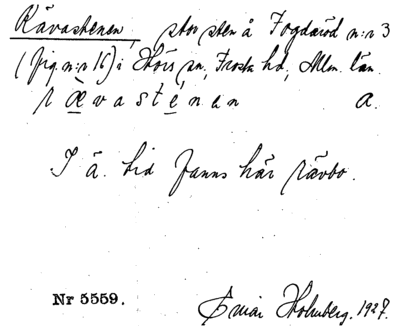 Rävastenen, stor sten å Fogdaröd n:r 3
(fig. n:r 16) i Hörs sn, Frosta hd, Mlm. län.
rævasténan a.
I ä. tid fanns här rävbo.
Nr 5559. Ingvar Holmberg. 1927.